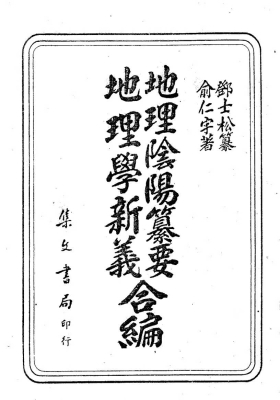 鄧士松纂
俞仁宇著
地理陰陽纂要
地理學新義
合編
集文書局印行